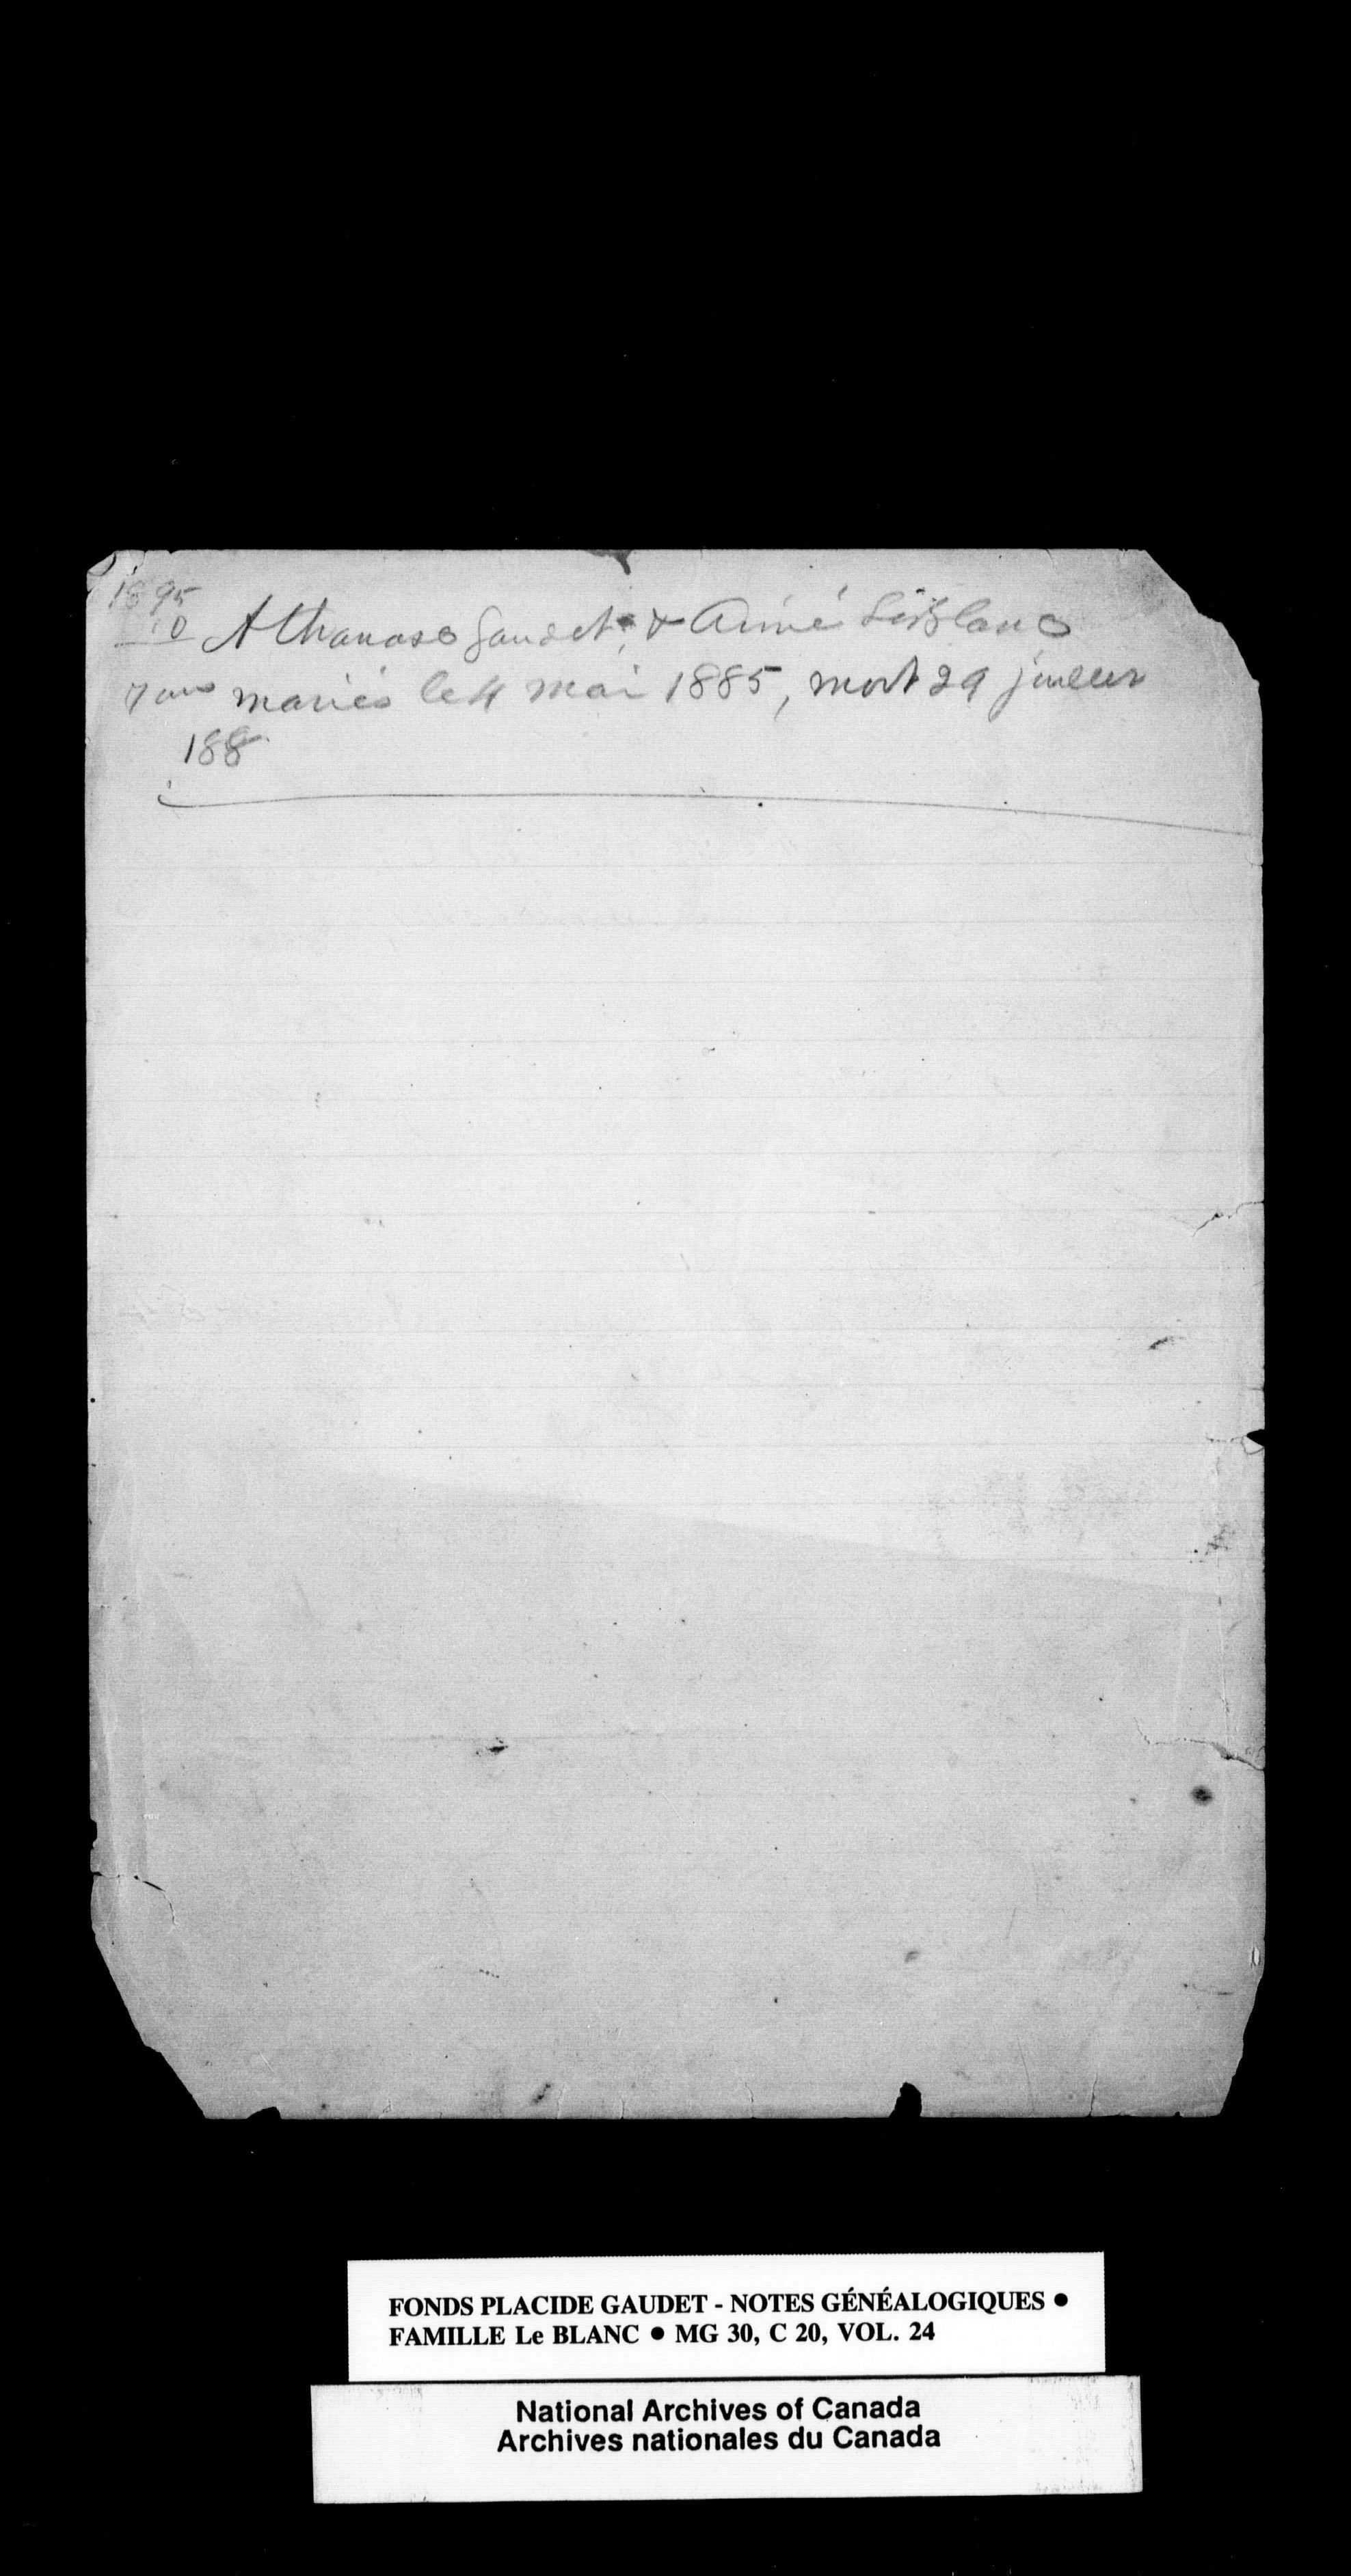 1895
10 Athanase Gaudet, & Aimé LeBlanc
7 ans mariés le 4 mai 1885, mort 29 juillet
188
FONDS PLACIDE GAUDET - NOTES GÉNÉALOGIQUES ●
FAMILLE Le BLANC ● MG 30, C 20, VOL. 24
National Archives of Canada
Archives nationales du Canada